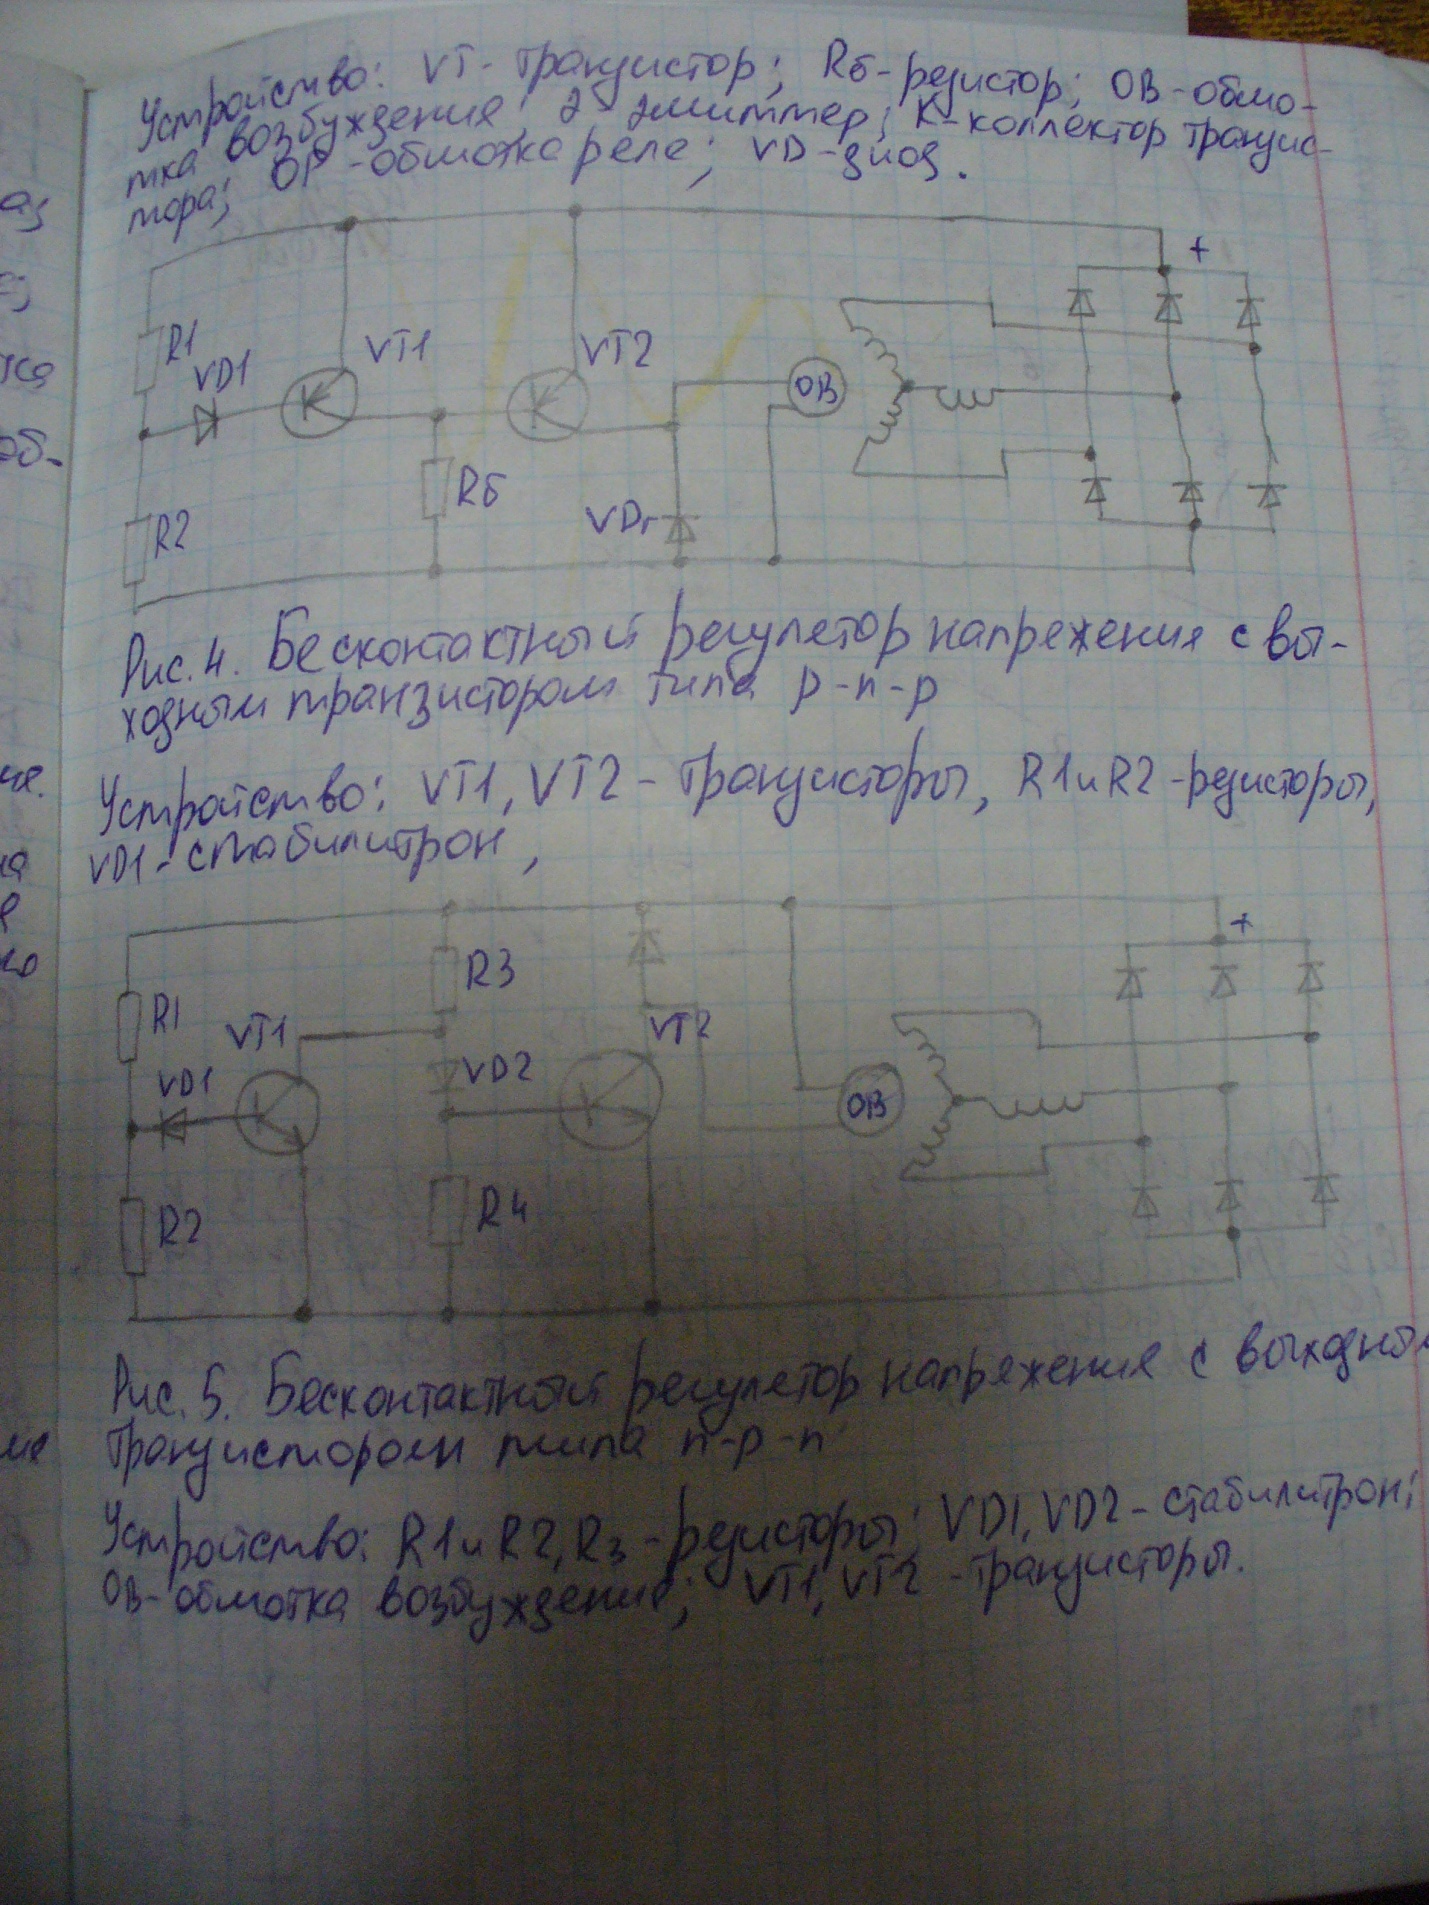 Устройство: VT- транзистор; Rб-резистор; ОВ-обмо-
тка возбуждения; Э-эмиттер; К-коллектор транзис-
тора; ОР-обмотка реле; VD-диод.
+
R1
VD1
VT1
VT2
ОВ
Rб
VDг
R2
Рис. 4. Бесконтактный регулятор напряжения с вы-
ходным транзистором типа p-n-p
Устройство: VT1, VT2 - транзисторы, R1 и R2 -резисторы,
VD1-стабилитрон,
+
R3
R1
VT1
VT2
VD1
VD2
ОВ
R2
R4
Рис. 5. Бесконтактный регулятор напряжения с выходным
транзистором типа n-p-n
Устройство: R1 и R2, R3 -резисторы; VD1, VD2-стабилитрон;
ОВ-обмотка возбуждения; VT1, VT2 -транзисторы.